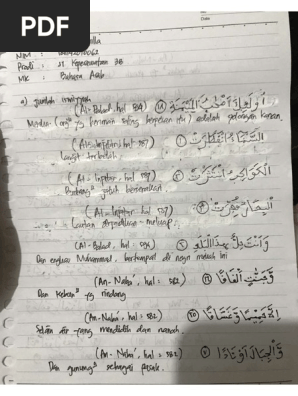 PDF
Date
NIM :
Prodi : S1 Keperawatan 3B
MK : Bahasa Arab
a) Jumlah ismiyyah
(Al-Balad, hal: 594) أُولَٰئِكَ أَصْحَابُ الْمَيْمَنَةِ ١٨
Mereka (org² yg beriman saling berpesan itu) adalah golongan kanan.
(Al-Infitar, hal: 587) السَّمَاءُ انْفَطَرَتْ ١
Langit terbelah
(Al-Infitar, hal: 587) الْكَوَاكِبُ انْتَثَرَتْ ٢
Bintang² jatuh berserakan
(Al-Infitar, hal: 587) الْبِحَارُ فُجِّرَتْ ٣
Lautan dijadikan meluap
(Al-Balad, hal: 594) وَأَنْتَ حِلٌّ بِهَٰذَا الْبَلَدِ ٢
Dan engkau Muhammad, bertempat di negri mekah ini
(An-Naba', hal: 582) وَجَنَّاتٍ أَلْفَافًا ١٦
Dan kebun² yg rindang
(An-Naba', hal: 582) إِلَّا حَمِيمًا وَغَسَّاقًا ٢٥
Selain air yang mendidih dan nanah.
(An-Naba', hal: 582) وَالْجِبَالَ أَوْتَادًا ٧
Dan gunung² sebagai pasak.